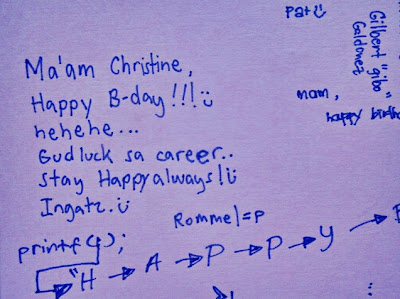 Ma'am Christine,
Happy B-day!!!
hehehe...
Gudluck sa career..
Stay Happy always!
Ingatz.
Rommel=P
printf();
"H → A → P → P → Y →
Pat
Gilbert "gibo"
Galdonez
mam,
happy